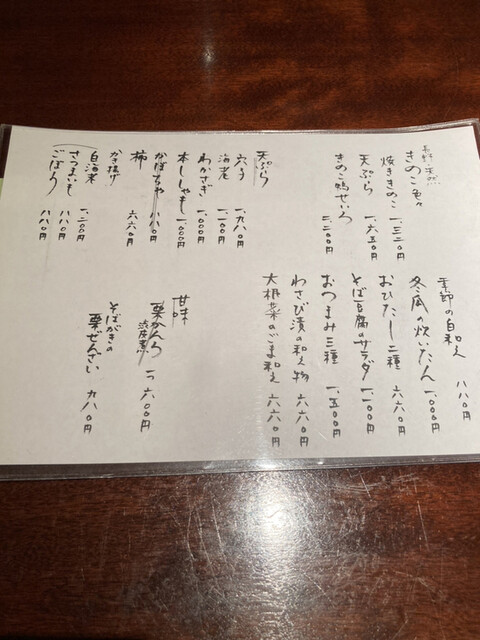 長野の天然
きのこ色々
焼ききのこ 一、三二〇円
天ぷら 一、六五〇円
きのこ鴨せいろ 二、二〇〇円
天ぷら
穴子 一、九八〇円
海老 一、一〇〇円
わかさぎ 一、〇〇〇円
本ししゃも 一、〇〇〇円
かぼちゃ 八八〇円
柿 六六〇円
かき揚げ
白海老 一、二〇〇円
さつまいも 八八〇円
ごぼう 八八〇円
季節の白和え 八八〇円
冬瓜の炊いたん 一、〇〇〇円
おひたし二種 六六〇円
そば豆腐のサラダ 一、一〇〇円
おつまみ三種 一、五〇〇円
わさび漬の和え物 六六〇円
大根菜のごま和え 六六〇円
甘味
栗かんろ
渋皮煮 一ヶ 六〇〇円
そばがきの
栗ぜんざい 九八〇円